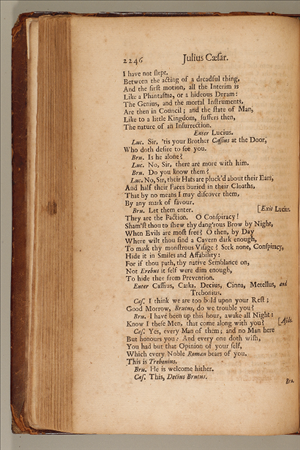 2246 Julius Cæsar.
I have not slept.
Between the acting of a dreadful thing,
And the first motion, all the Interim is
Like a Phantasma, or a hideous Dream:
The Genius, and the mortal Instruments,
Are then in Council; and the state of Man,
Like to a little Kingdom, suffers then,
The nature of an Insurrection.
Enter Lucius.
Luc. Sir, 'tis your Brother Cassius at the Door,
Who doth desire to see you.
Bru. Is he alone?
Luc. No, Sir, there are more with him.
Bru. Do you know them?
Luc. No, Sir, their Hats are pluck'd about their Ears,
And half their Faces buried in their Cloaths,
That by no means I may discover them,
By any mark of favour.
Bru. Let them enter. [Exit Lucius.
They are the Faction. O Conspiracy!
Sham'st thou to shew thy dang'rous Brow by Night,
When Evils are most free? O then, by Day
Where wilt thou find a Cavern dark enough,
To mask thy monstrous Visage? Seek none, Conspiracy,
Hide it in Smiles and Affability:
For if thou path, thy native Semblance on,
Not Erebus it self were dim enough,
To hide thee from Prevention.
Enter Cassius, Caska, Decius, Cinna, Metellus, and
Trebonius.
Cas. I think we are too bold upon your Rest;
Good Morrow, Brutus, do we trouble you?
Bru. I have been up this hour, awake all Night:
Know I these Men, that come along with you? [Aside
Cas. Yes, every Man of them; and no Man here
But honours you: And every one doth wish,
You had but that Opinion of your self,
Which every Noble Roman bears of you.
This is Trebonius.
Bru. He is welcome hither.
Cas. This, Decius Brutus.